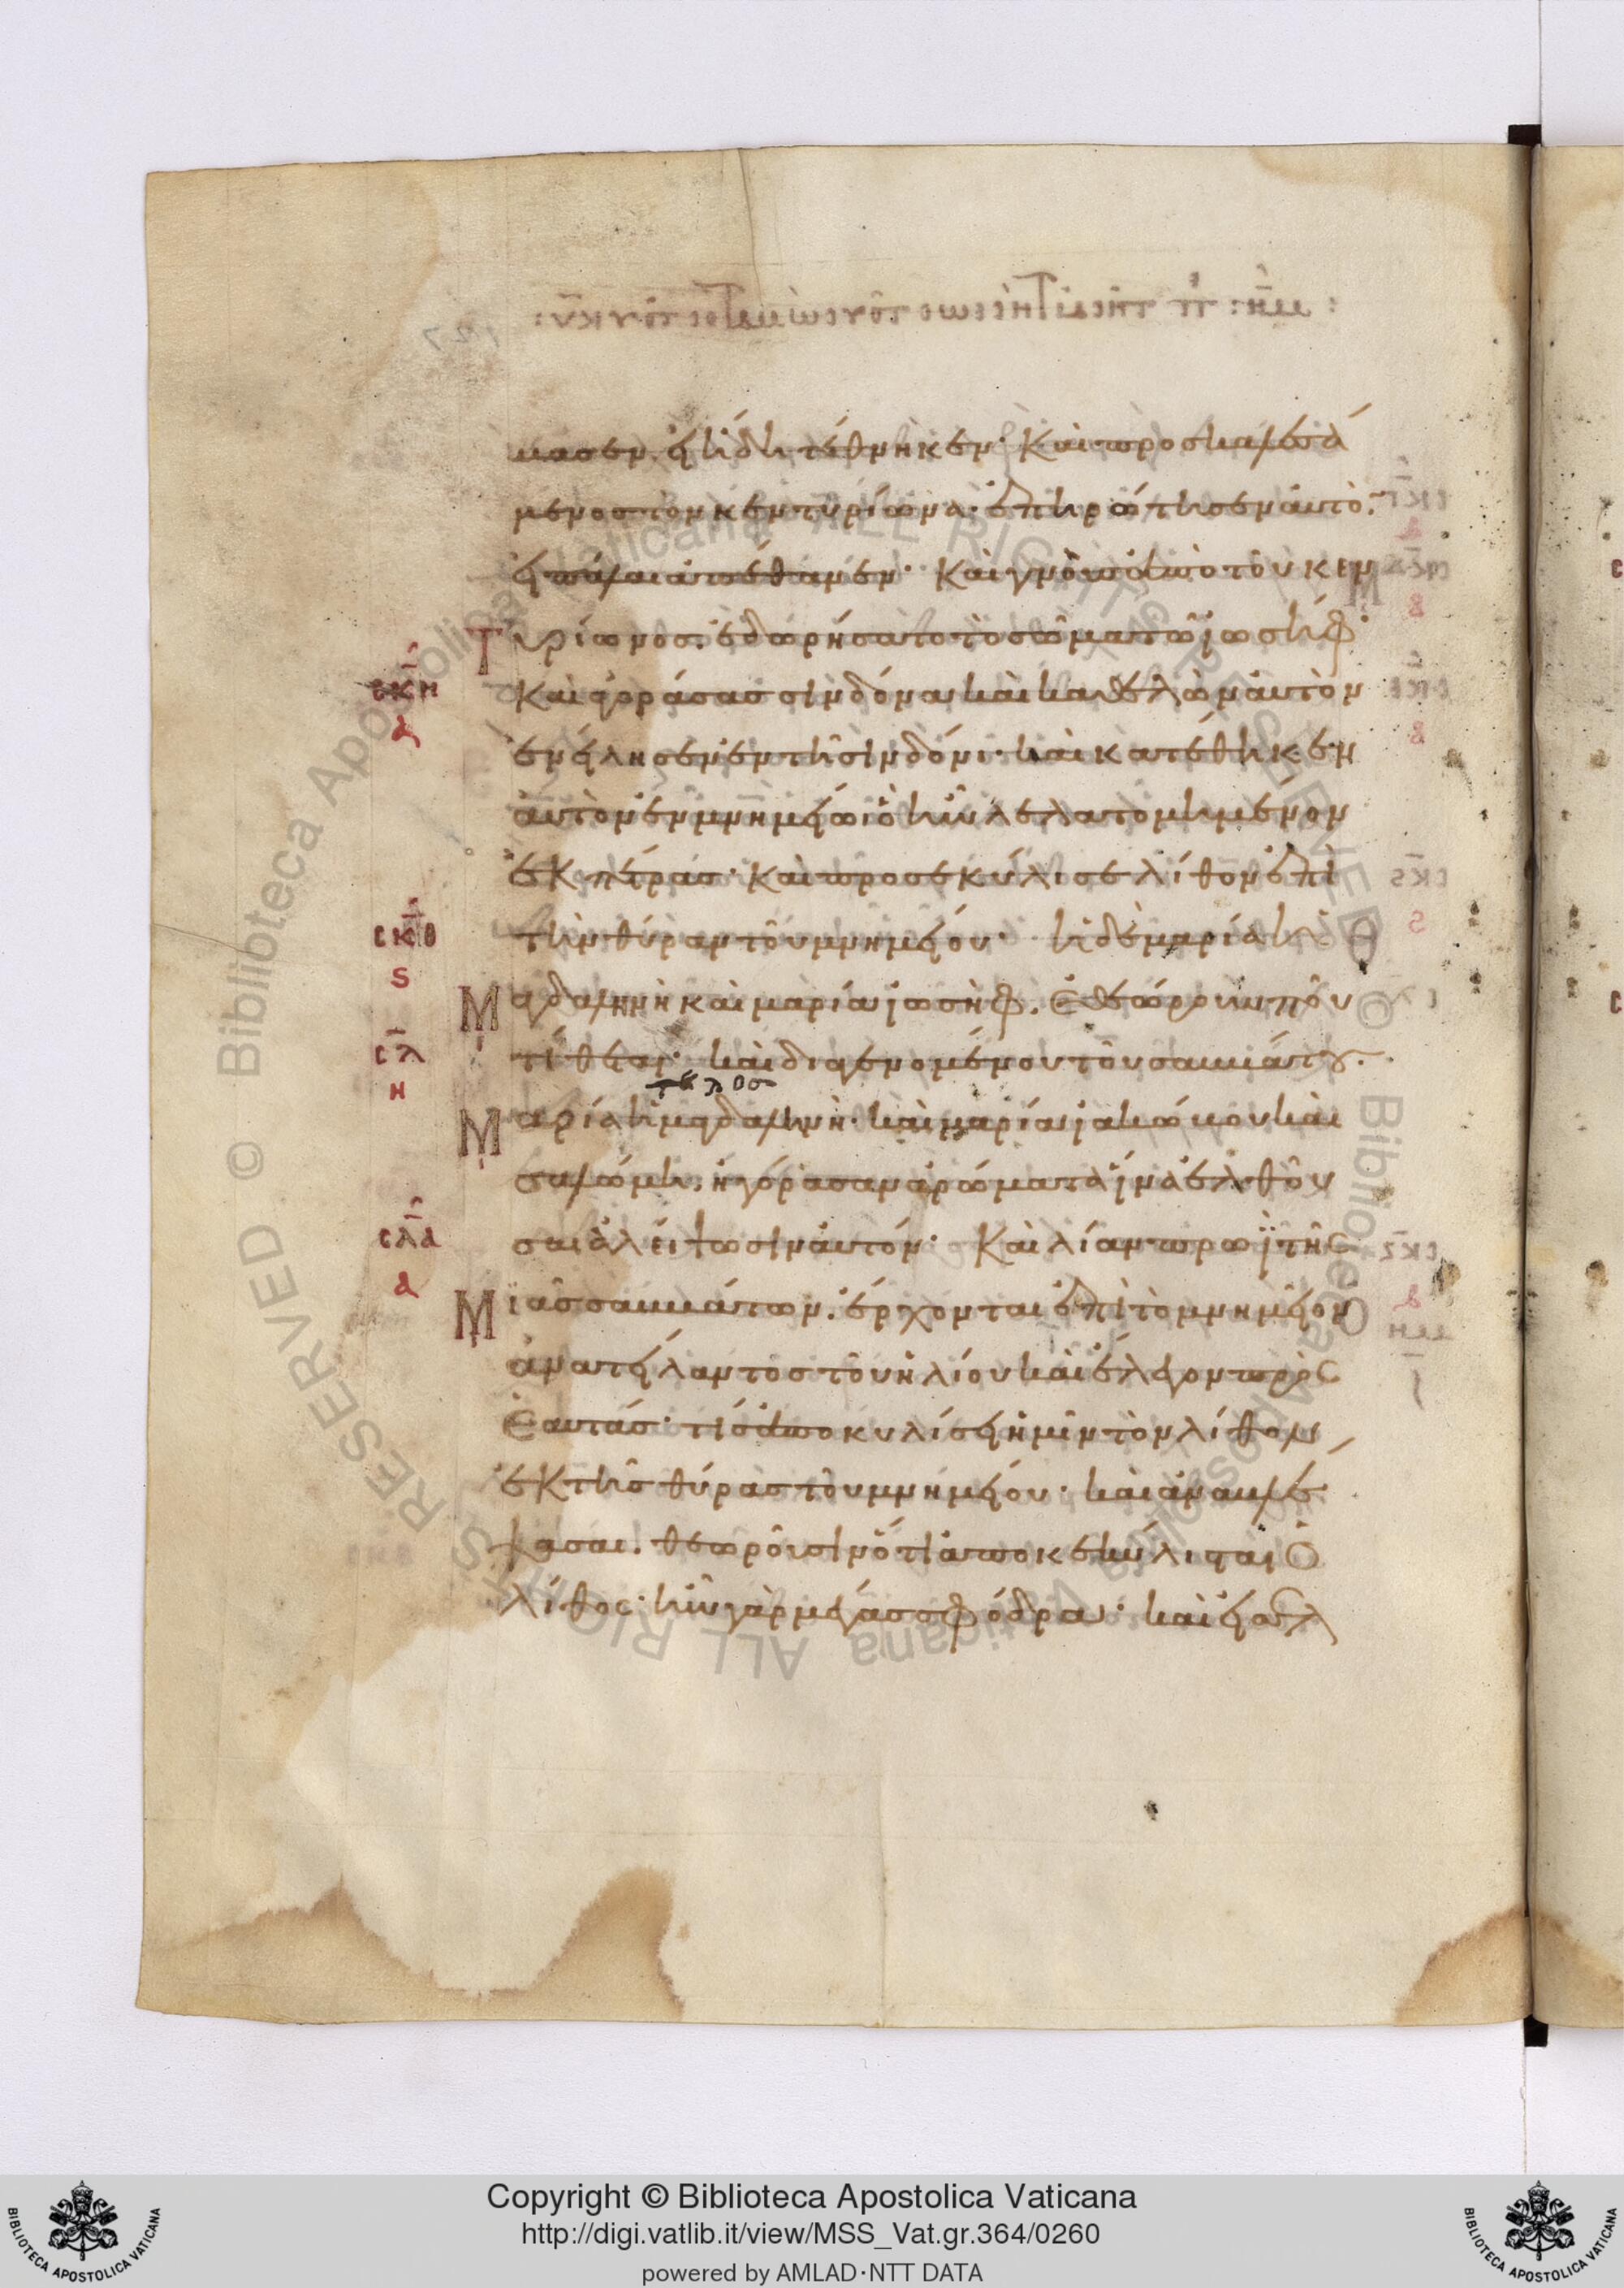 μασεν, εἰ ἤδη τέθνηκεν· Καὶ προσκαλεσά
μενος τὸν κεντυρίωνα· ἐπηρώτησεν αὐτὸ̅
εἰ πάλαι ἀπέθανεν· Καὶ γνοὺς ἀπὸ τοῦ κεν
Τυρίωνος. ἐδωρήσατο τὸ σῶμα τῶ ἰωσήφ·
σκη
Καὶ ἀγοράσας σινδόνα καὶ καθελὼν αὐτὸν
α
ἐνείλησεν ἐν τῆ σινδόνι· καὶ κατέθηκεν
αὐτὸν ἐν μνημείωι ὃ ἦν λελατομημένον
ἐκ πέτρας· καὶ προσεκύλισε λίθον ἐπὶ
σκθ
τὴν θύραν τοῦ μνημείου· ἡ δὲ μαρία ἡ
ς
Μαγδαληνὴ καὶ μαρία ἰωσὴφ. Ἐθεώρουν ποῦ
σλ
τίθεται· καὶ διαγενομένου τοῦ σαββάτου·
η
τελοσ
Μαρία ἡ μαγδαληνὴ· καὶ μαρία ἰακώβου καὶ
σαλώμη, ἠγόρασαν ἀρώματα ἵνα ἐλθοῦ
σλα
σαι ἀλείψωσιν αὐτόν· Καὶ λίαν πρωῒ τῆς
α
Μιᾶς σαββάτων. ἔρχονται ἐπὶ τὸ μνημεῖον
ἀνατείλαντος τοῦ ἡλίου καὶ ἔλεγον πρὸς
Ἑαυτάς· τίς ἀποκυλίσει ἡμῖν τὸν λίθον
ἐκ τῆς θύρας τοῦ μνημείου· καὶ ἀναβλέ
ψασαι. θεωροῦσιν ὅτι ἀποκεκύλισται ὁ
λίθος· ἦν γὰρ μέγας σφόδρα· καὶ εἰσελ
Copyright © Biblioteca Apostolica Vaticana
http://digi.vatlib.it/view/MSS_Vat.gr.364/0260
powered by AMLAD·NTT DATA
BIBLIOTECA APOSTOLICA VATICANA
BIBLIOTECA APOSTOLICA VATICANA
© Biblioteca Apostolica Vaticana ALL RIGHTS RESERVED
© Biblioteca Apostolica Vaticana ALL RIGHTS RESERVED